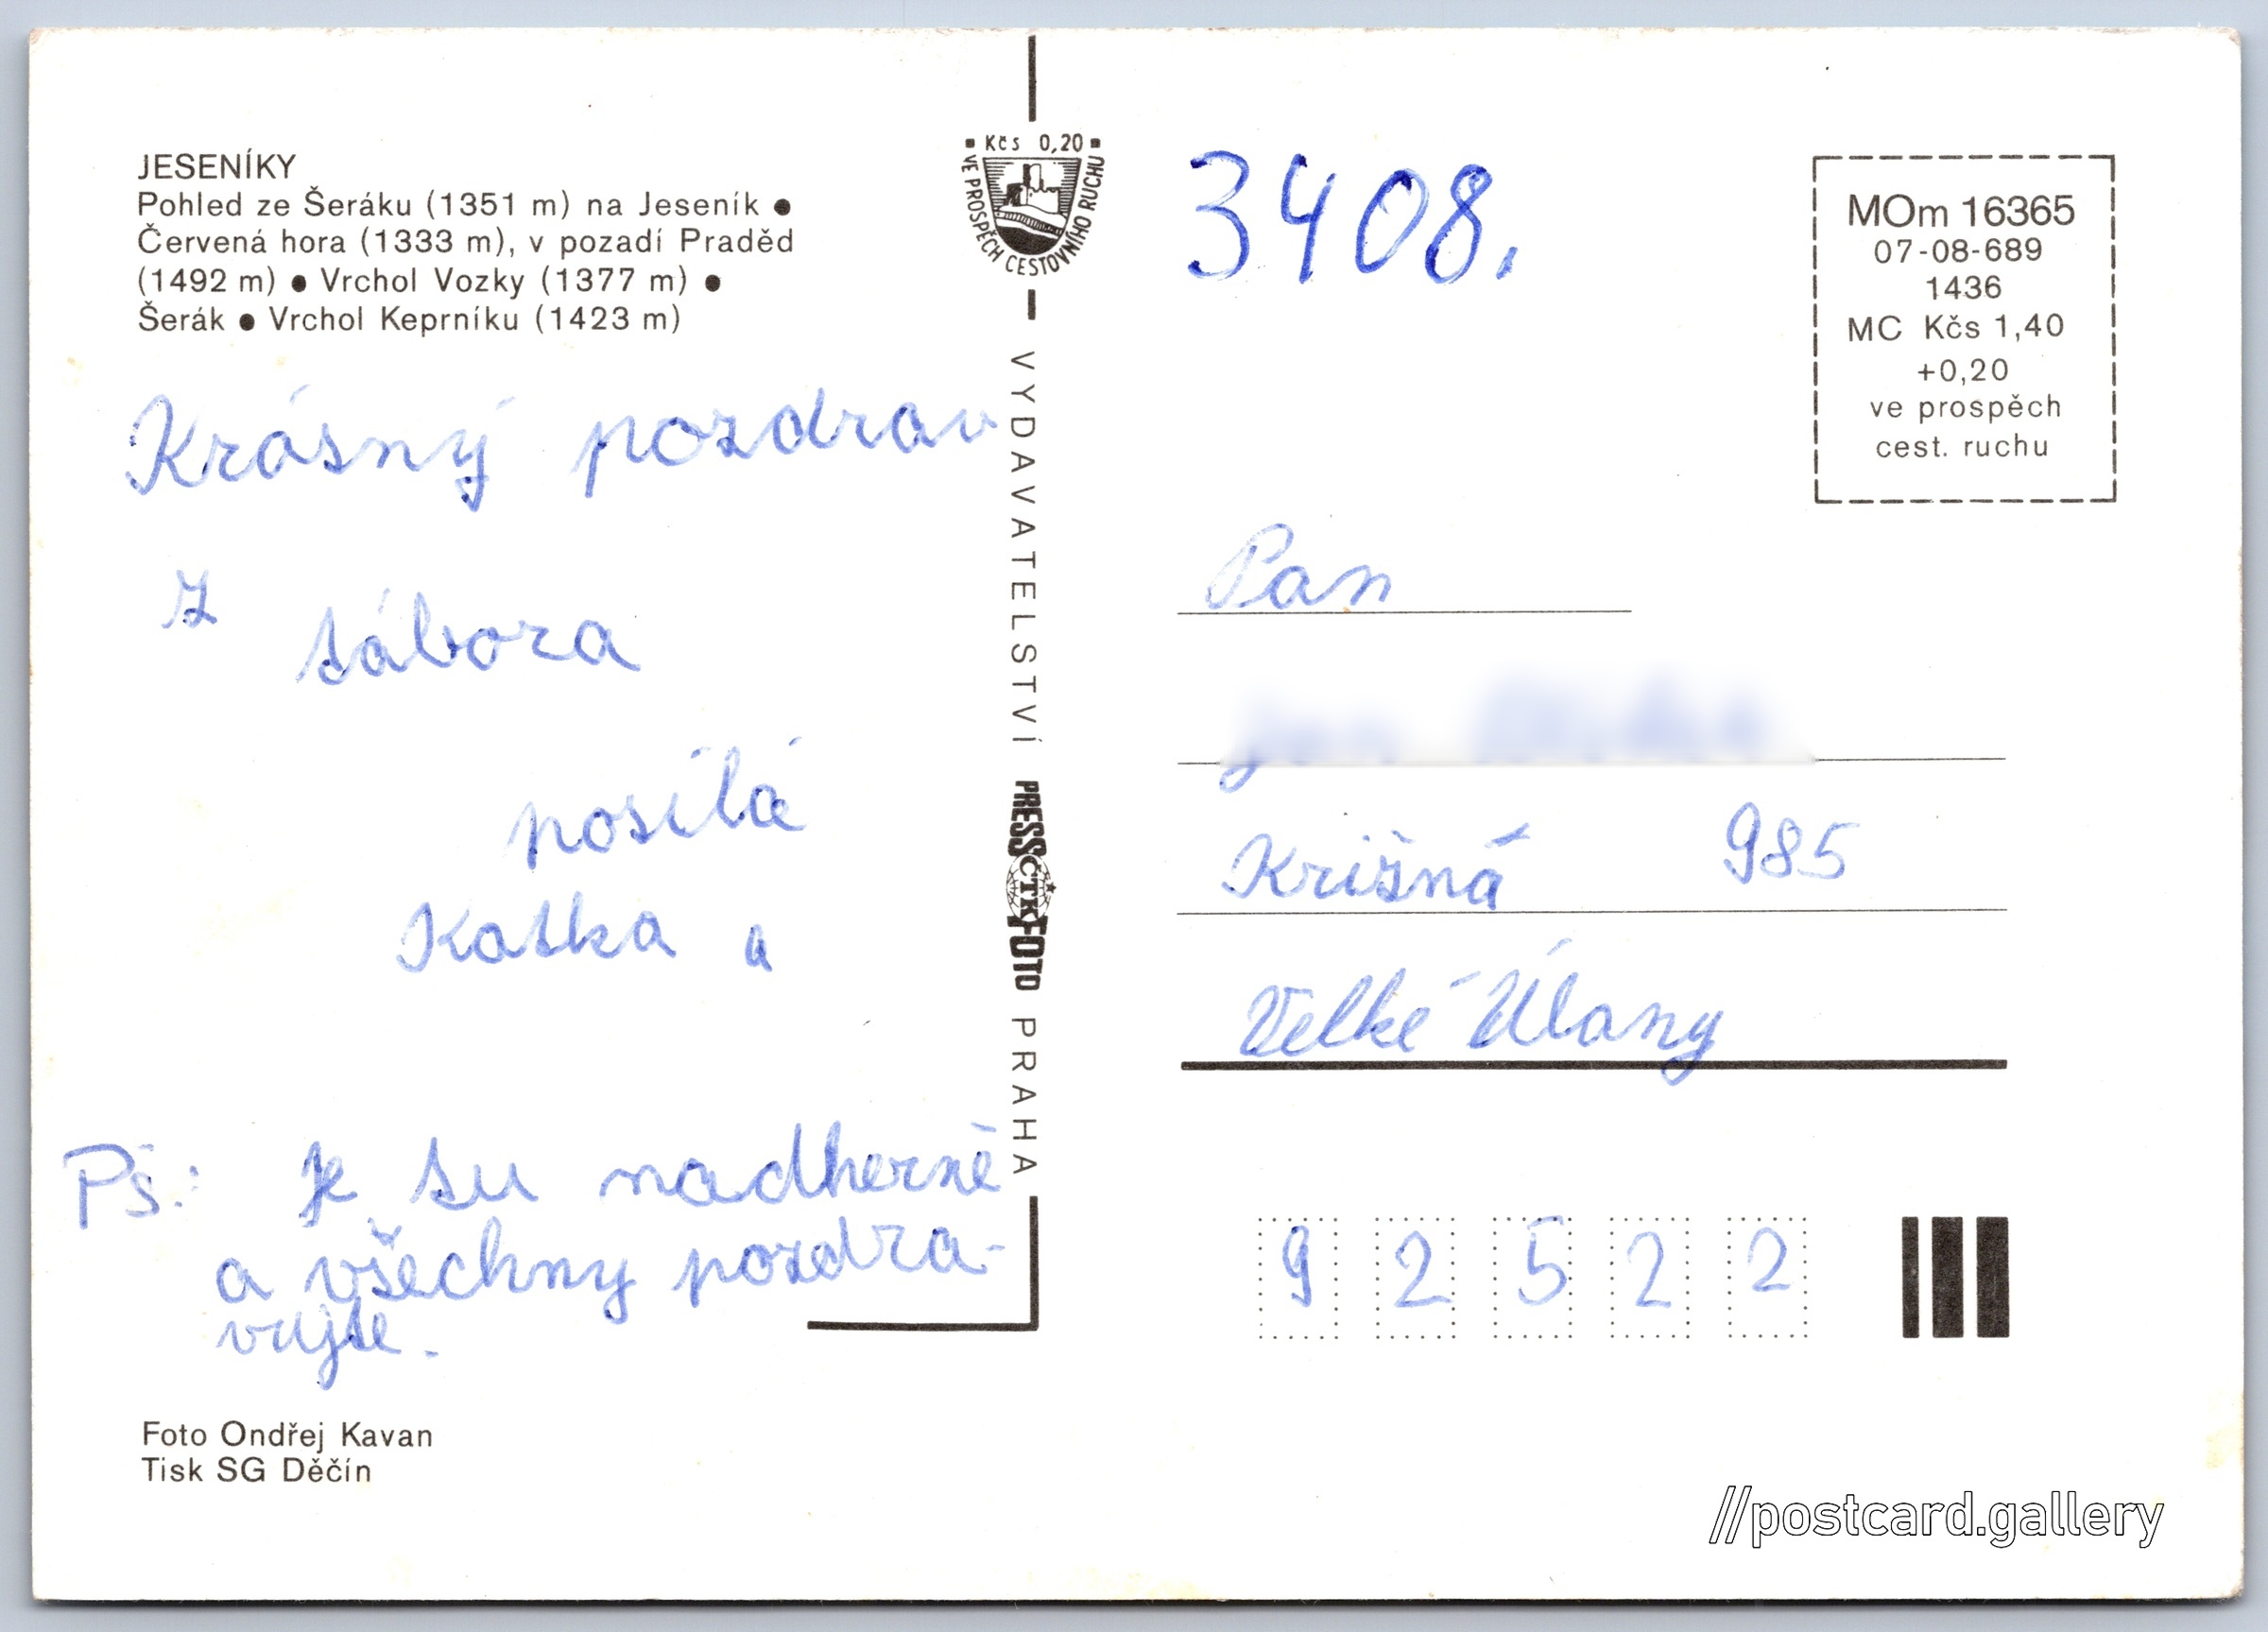 JESENÍKY
Pohled ze Šeráku (1351 m) na Jeseník ●
Červená hora (1333 m), v pozadí Praděd
(1492 m) ● Vrchol Vozky (1377 m) ●
Šerák ● Vrchol Keprníku (1423 m)
Krásný pozdrav
z tábora
posílá
Katka a
PS: Je tu nadherně
a všechny pozdra-
vujte.
Foto Ondřej Kavan
Tisk SG Děčín
Kčs 0,20
VE PROSPĚCH CESTOVNÍHO RUCHU
VYDAVATELSTVÍ PRESSFOTO PRAHA
ČTK
3408.
MOm 16365
07-08-689
1436
MC Kčs 1,40
+0,20
ve prospěch
cest. ruchu
Pan
Krišná 985
Velké Úlany
92522
//postcard.gallery